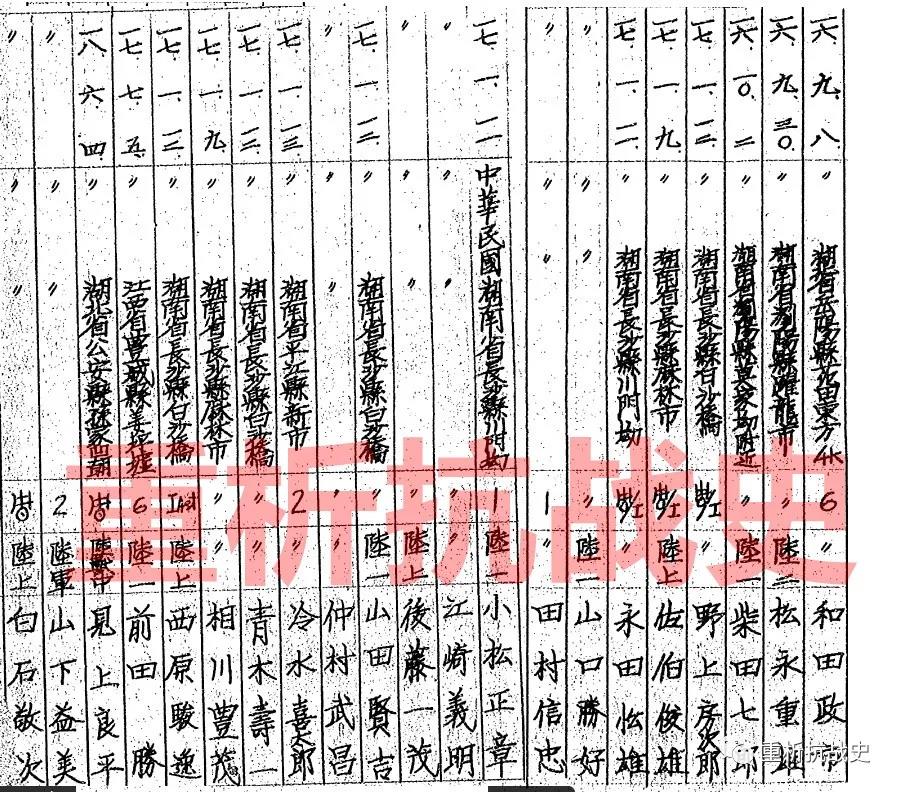 一六 九 八 〃 岳陽縣 東方4K 6 〃 和田政市
一六 九 三〇 〃 湖南省瀏陽縣 龍市 〃 陸 松永重雄
一六 一〇 二 〃 附近 〃 陸一 柴田七郎
一七 一 一三 〃 湖南省長沙縣白沙橋 〃 野上房次郎
一七 一 九 〃 湖南省長沙縣麻林市 陸上 佐伯俊雄
一七 一 二 〃 湖南省長沙縣川門坳 〃 永田 雄
〃 〃 〃 〃 陸一 山口勝好
〃 〃 〃 1 〃 田村信忠
一七 一 二 中華民國湖南省長沙縣川門坳 1 陸一 小松正章
〃 〃 〃 〃 江崎義明
〃 〃 〃 陸上 後藤一茂
一七 一 一三 〃 湖南省長沙縣白沙橋 〃 陸一 山田賢吉
〃 〃 〃 仲村武昌
一七 一 一三 〃 湖南省平江縣新市 2 〃 冷水喜太郎
一七 一 一三 〃 湖南省長沙縣白沙橋 〃 〃 青木壽一
一七 一 九 〃 湖南省長沙縣麻林市 〃 〃 相川豊茂
一七 一 一三 〃 湖南省長沙縣白沙橋 陸上 西原駿逸
一七 七 五 〃 江西省豊城縣姜 墟 6 陸一 前田勝
一八 六 四 〃 湖北省公安縣 見上良平
〃 〃 〃 2 陸軍 山下益美
〃 〃 〃 陸上 白石敬次
重析抗战史
重析抗战史